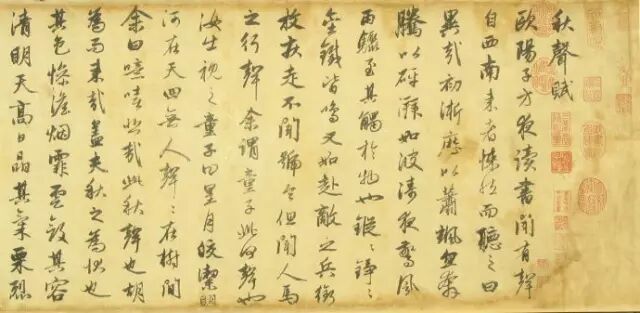 秋聲賦
歐陽子方夜讀書聞有聲
自西南来者悚然而聽之曰
異哉初淅瀝以蕭颯忽奔
騰以砰湃如波濤夜驚風
雨驟至其觸於物也鏦〻錚〻
金鐵皆鳴又如赴敵之兵銜
枚疾走不聞號令但聞人馬
之行聲余謂童子此何聲也
汝出視之童子曰星月皎潔明
河在天四無人聲〻在樹間
余曰噫嘻悲哉此秋聲也胡
為而来哉盖夫秋之為狀也
其色慘澹烟霏雲斂其容
清明天高日晶其氣栗冽